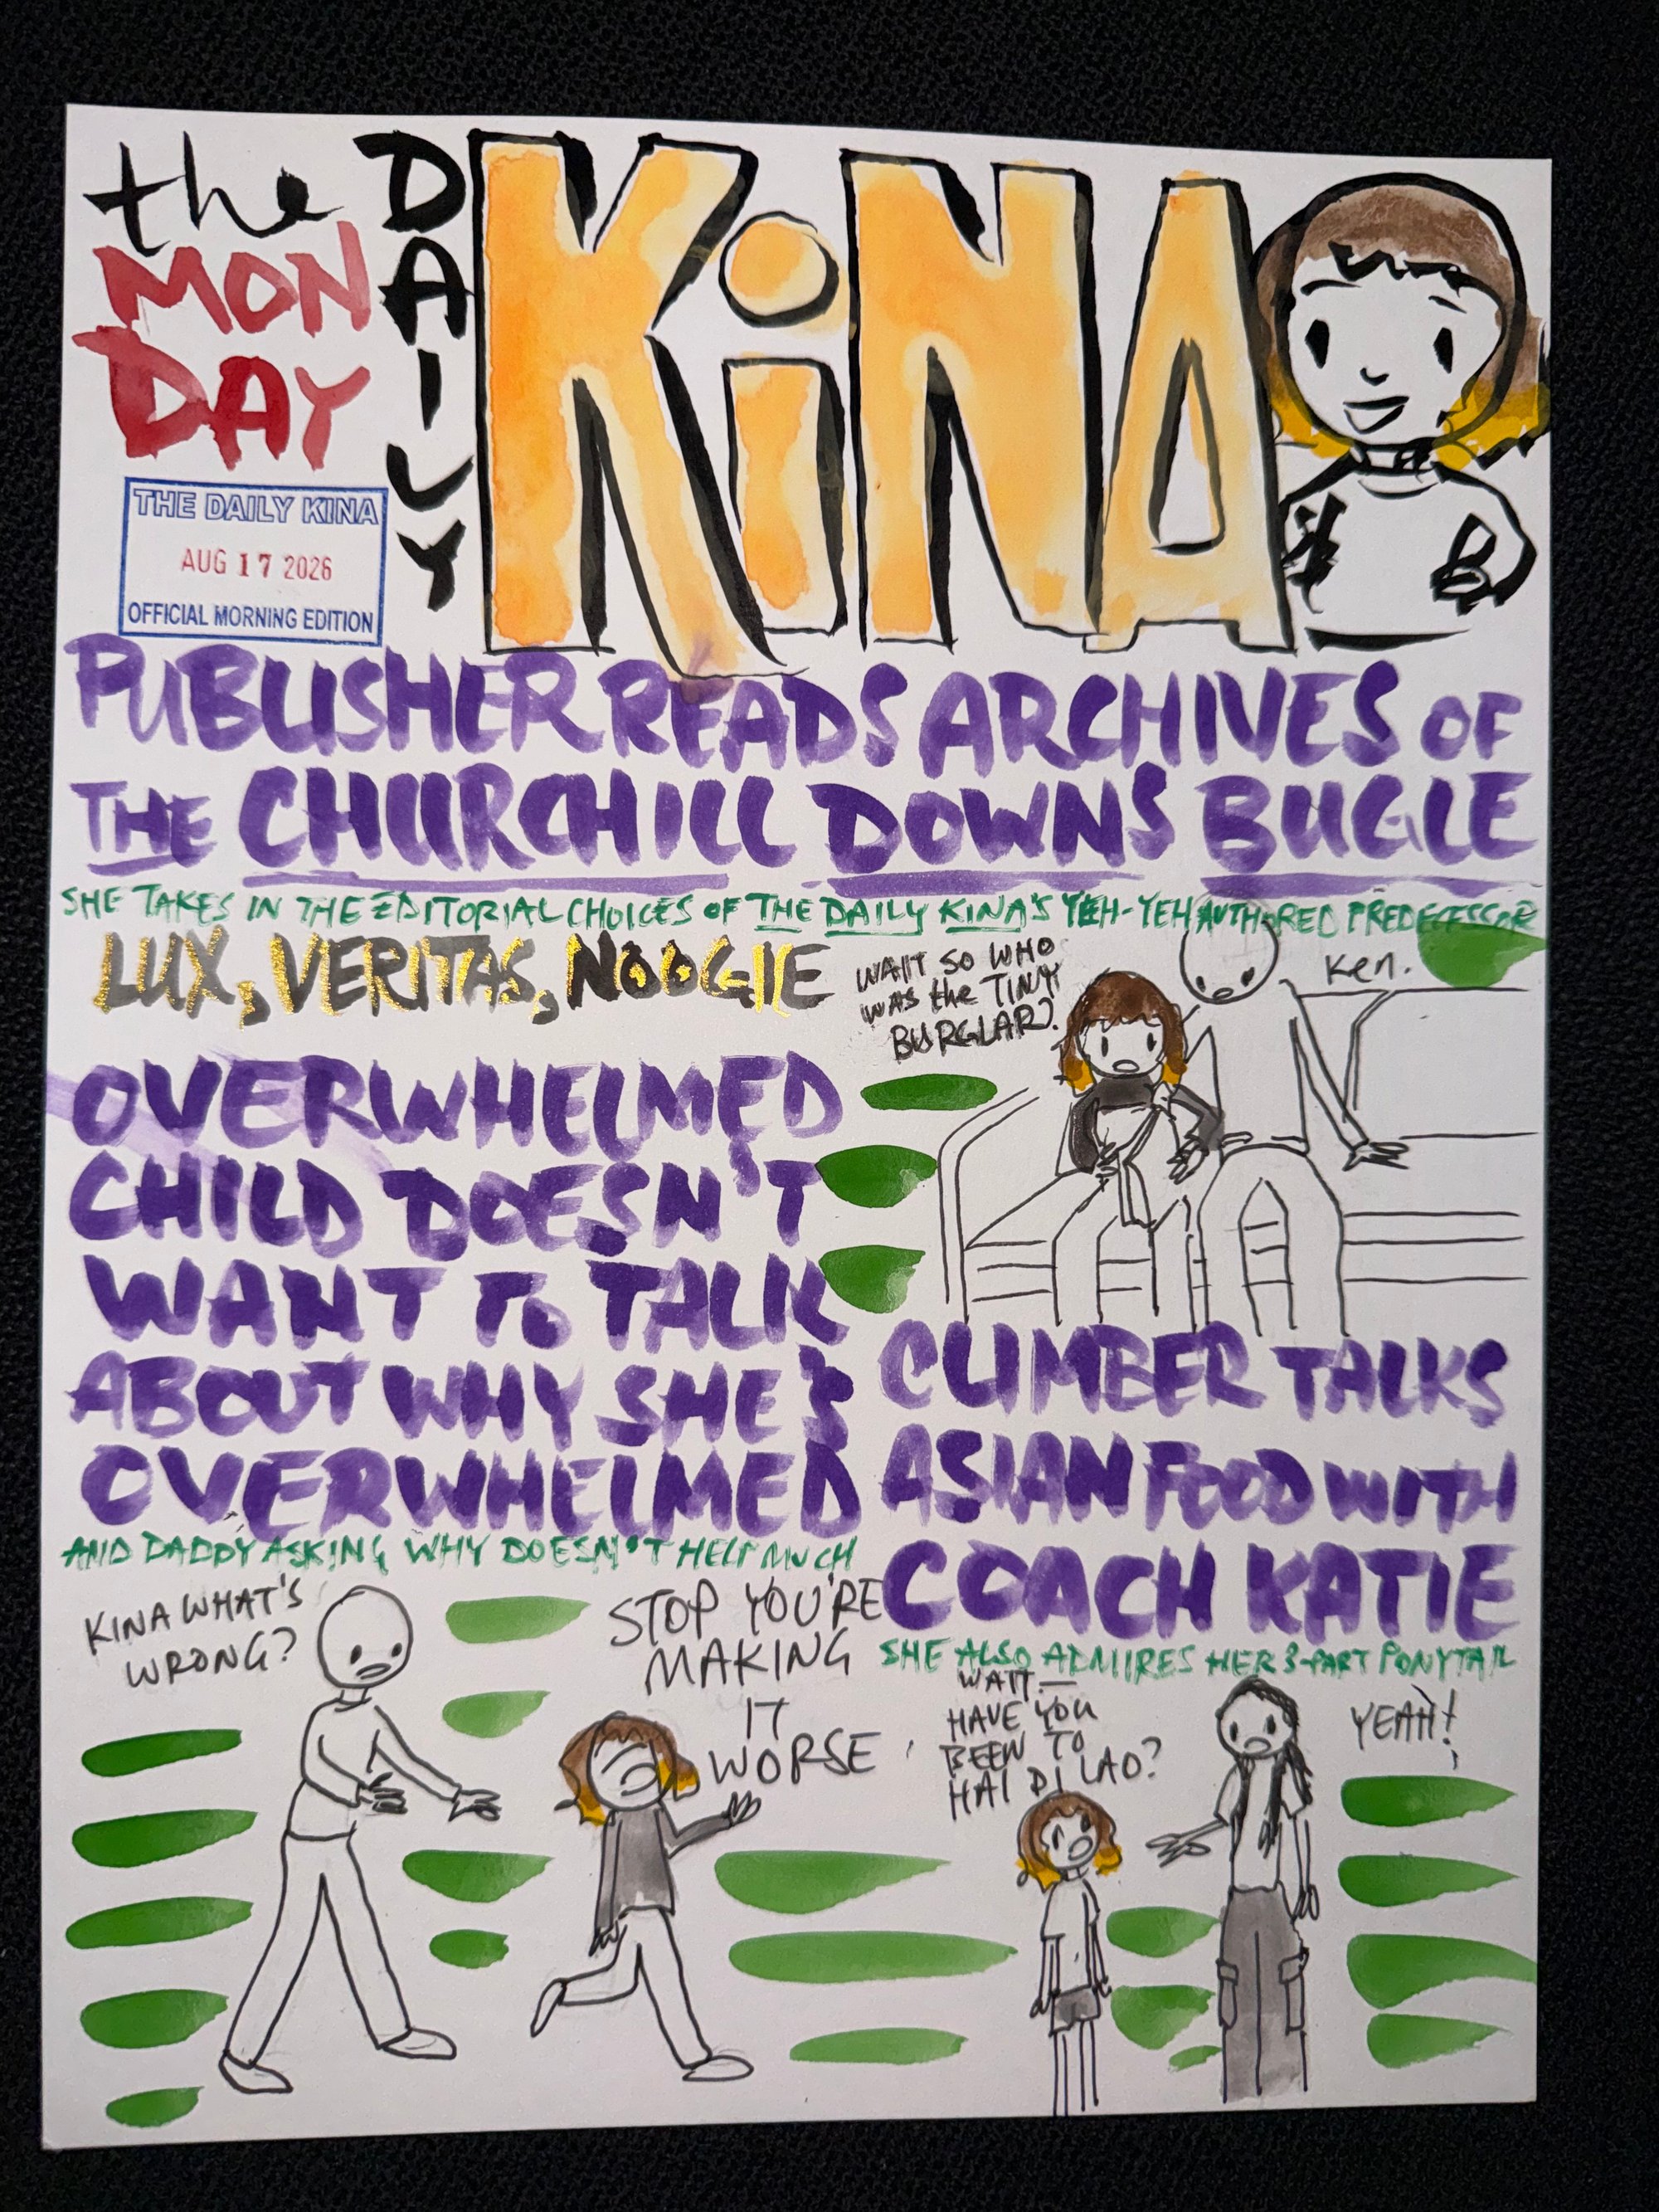 the
MON
DAY
DAILY
KiNA
THE DAILY KINA
AUG 17 2026
OFFICIAL MORNING EDITION
PUBLISHER READS ARCHIVES OF
THE CHURCHILL DOWNS BUGLE
SHE TAKES IN THE EDITORIAL CHOICES OF THE DAILY KINA'S YEH-YEH AUTHORED PREDECESSOR
LUX, VERITAS, NOOGIE
WAIT SO WHO
WAS the TINY
BURGLAR?
Ken.
OVERWHELMED
CHILD DOESN'T
WANT To TALK
ABOUT WHY SHE'S
OVERWHELMED
AND DADDY ASKING WHY DOESN'T HELP MUCH
KINA WHAT'S
WRONG?
STOP YOU'RE
MAKING
IT
WORSE
CLIMBER TALKS
ASIAN FOOD WITH
COACH KATIE
SHE ALSO ADMIRES HER 3-PART PONYTAIL
WAIT—
HAVE YOU
BEEN TO
HAI DI LAO?
YEAH!